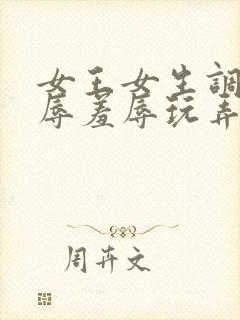 女王女生調
辱羞辱玩弄
周卉文